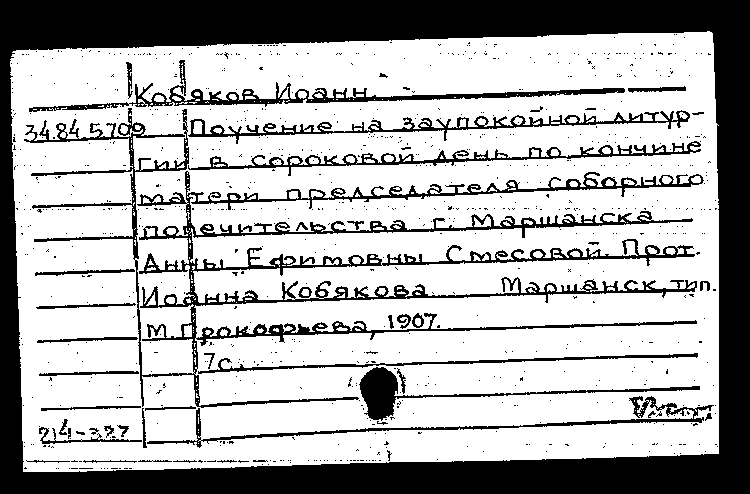 Кобяков, Иоанн.
34.84.5709 Поучение на заупокойной литур-
гии в сороковой день по кончине
матери председателя соборного
попечительства г. Маршанска
Анны Ефимовны Смесовой. Прот.
Иоанна Кобякова. Маршанск, тип.
М. Прокофьева, 1907.
7с.
214-327